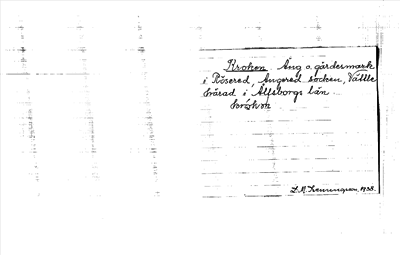 Kroken Äng o. gärdesmark
i Rösered Angered socken, Vättle
härad i Älfsborgs län
krókɷn
1938.